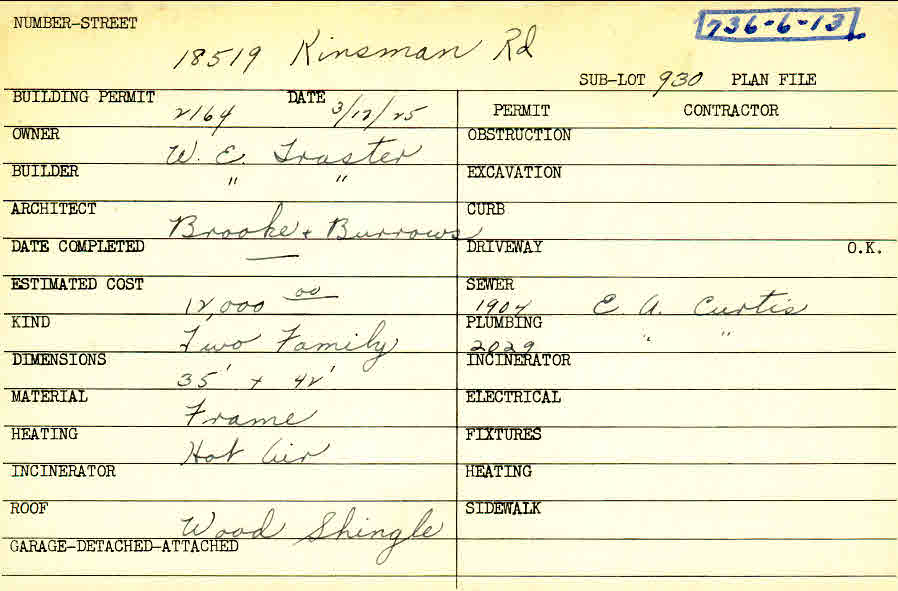 NUMBER-STREET
736-6-13
18519 Kinsman Rd
SUB-LOT 930 PLAN FILE
BUILDING PERMIT 2164 DATE 3/12/25
OWNER W. E. Traster
BUILDER " "
ARCHITECT Brooke + Burrows
DATE COMPLETED —
ESTIMATED COST 12,000 00
KIND Two Family
DIMENSIONS 35' + 42'
MATERIAL Frame
HEATING Hot Air
INCINERATOR
ROOF Wood Shingle
GARAGE-DETACHED-ATTACHED
PERMIT CONTRACTOR
OBSTRUCTION
EXCAVATION
CURB
DRIVEWAY O.K.
SEWER
1904 E. A. Curtis
PLUMBING
2029 " "
INCINERATOR
ELECTRICAL
FIXTURES
HEATING
SIDEWALK